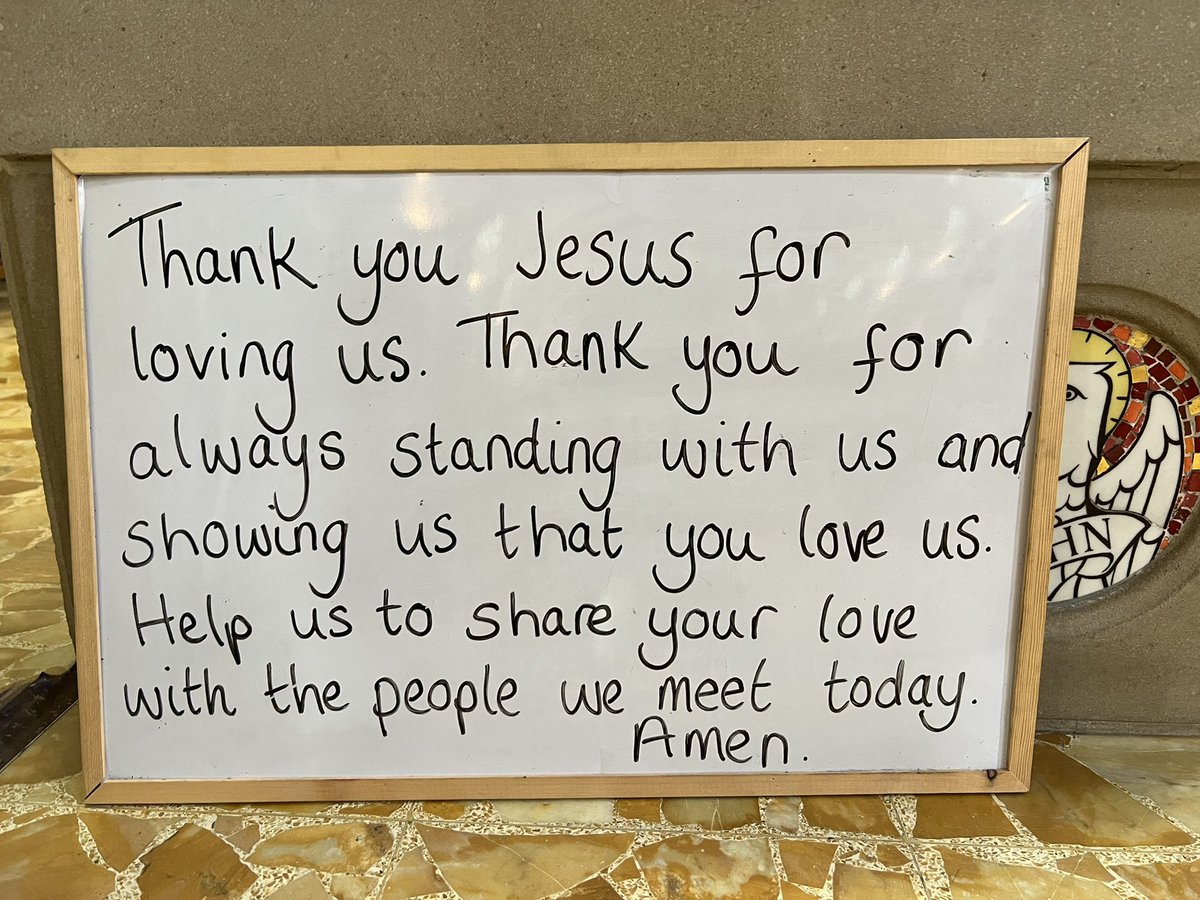 Thank you Jesus for
loving us. Thank you for
always standing with us and
showing us that you love us.
Help us to share your love
with the people we meet today.
Amen.
HN